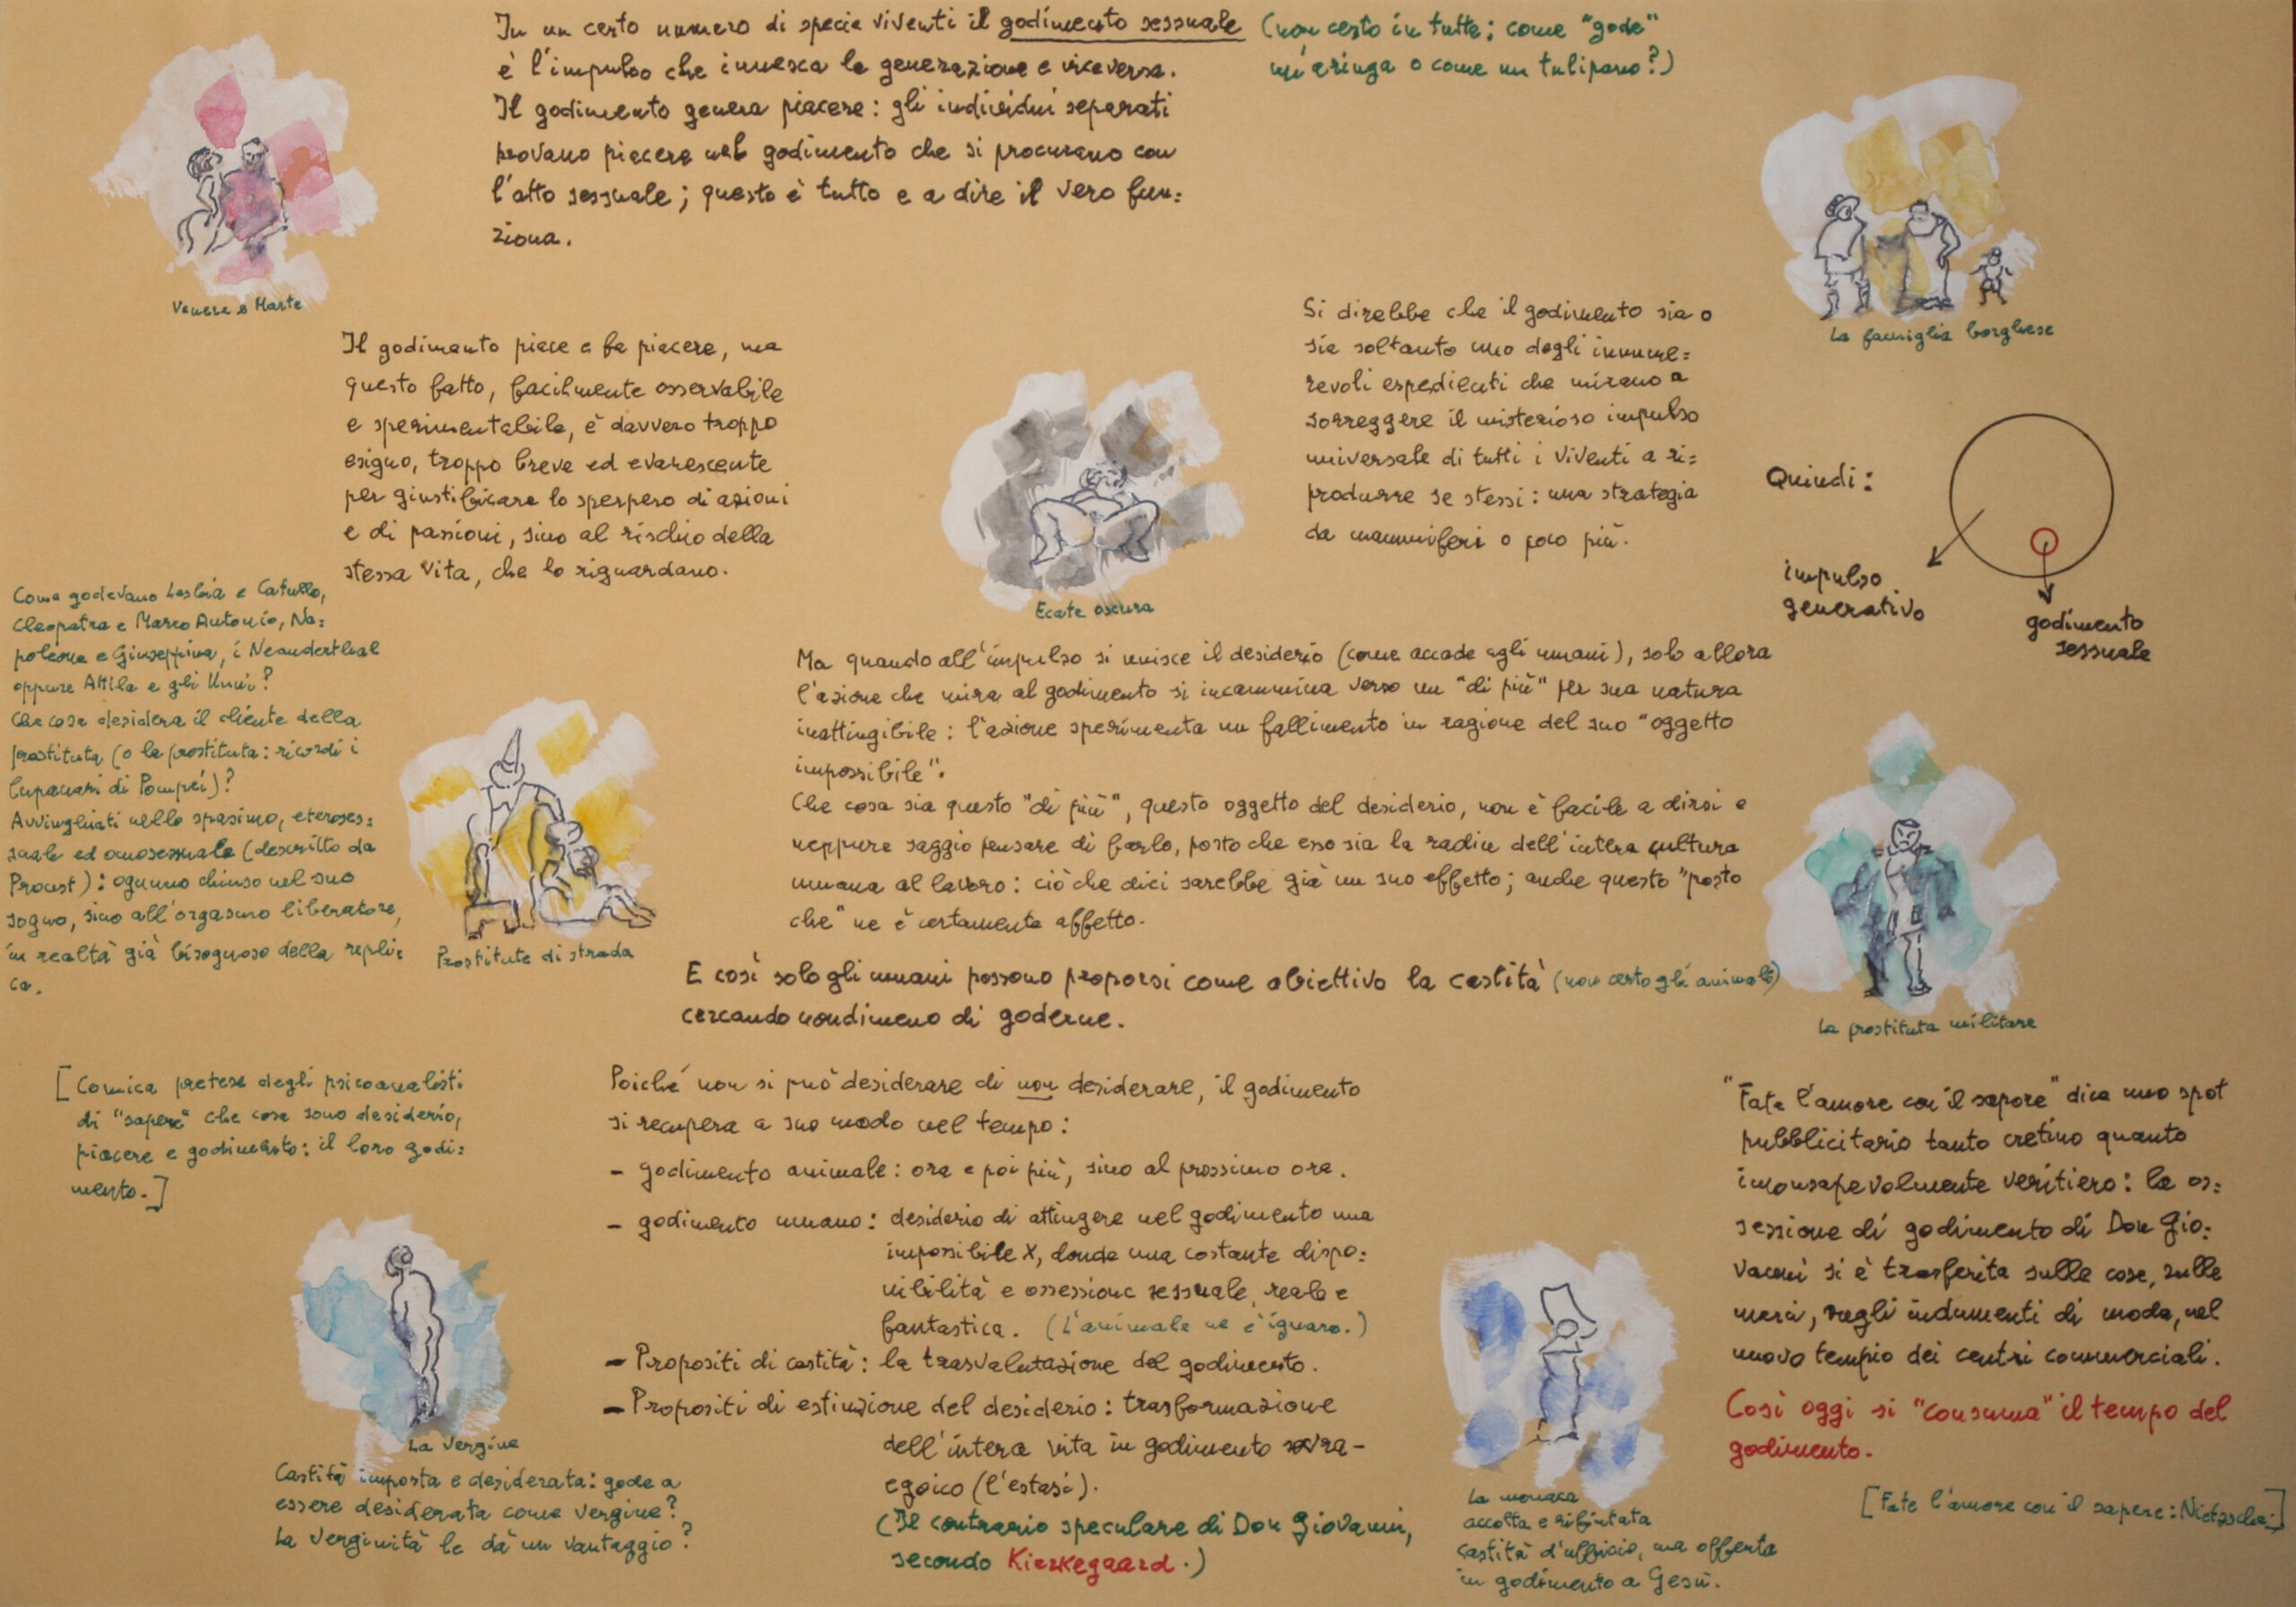 In un certo numero di specie viventi il godimento sessuale (non certo in tutte: come "gode"
è l'impulso che innesca la generazione e viceversa. un'aringa o come un tulipano?)
Il godimento genera piacere: gli individui separati
provano piacere nel godimento che si procurano con
l'atto sessuale; questo è tutto e a dire il vero fun=
ziona.
Venere e Marte
La famiglia borghese
Il godimento piace e fa piacere, ma
questo fatto, facilmente osservabile
e sperimentabile, è davvero troppo
esiguo, troppo breve ed evanescente
per giustificare lo sperpero di azioni
e di passioni, sino al rischio della
stessa vita, che lo riguardano.
Ecate oscura
Si direbbe che il godimento sia o
sia soltanto uno degli innume=
revoli espedienti che mirano a
sorreggere il misterioso impulso
universale di tutti i viventi a ri=
produrre se stessi: una strategia
da mammiferi o poco più.
Quindi:
impulso
generativo
godimento
sessuale
Come godevano Lesbia e Catullo,
Cleopatra e Marco Antonio, Na=
poleone e Giuseppina, i Neanderthal
oppure Attila e gli Unni?
Che cosa desidera il cliente della
prostituta (o la prostituta: ricordi i
lupanari di Pompei)?
Avvinghiati nello spasimo, eteroses=
suale ed omosessuale (descritto da
Proust): ognuno chiuso nel suo
sogno, sino all'orgasmo liberatore,
in realtà già bisognoso della repli=
ca.
Prostitute di strada
Ma quando all'impulso si unisce il desiderio (come accade agli umani), solo allora
l'azione che mira al godimento si incammina verso un "di più" per sua natura
inattingibile: l'azione sperimenta un fallimento in ragione del suo "oggetto
impossibile".
Che cosa sia questo "di più", questo oggetto del desiderio, non è facile a dirsi e
neppure saggio pensare di farlo, posto che esso sia la radice dell'intera cultura
umana al lavoro: ciò che dici sarebbe già un suo effetto; anche questo "posto
che" ne è certamente affetto.
E così solo gli umani possono proporsi come obiettivo la castità (non certo gli animali)
cercando nondimeno di goderne.
La prostituta militare
[Comica pretesa degli psicoanalisti
di "sapere" che cosa sono desiderio,
piacere e godimento: il loro godi=
mento.]
La Vergine
Castità imposta e desiderata: gode a
essere desiderata come vergine?
La verginità le dà un vantaggio?
Poiché non si può desiderare di non desiderare, il godimento
si recupera a suo modo nel tempo:
- godimento animale: ora e poi più, sino al prossimo ora.
- godimento umano: desiderio di attingere nel godimento una
impossibile X, donde una costante dispo=
nibilità e ossessione sessuale, reale e
fantastica. (L'animale ne è ignaro.)
- Propositi di castità: la trasvalutazione del godimento.
- Propositi di estinzione del desiderio: trasformazione
dell'intera vita in godimento sovra-
egoico (l'estasi).
(Il contrario speculare di Don Giovanni,
secondo Kierkegaard.)
La monaca
accolta e rifiutata
castità d'ufficio, ma offerta
in godimento a Gesù.
"Fate l'amore con il sapore" dice uno spot
pubblicitario tanto cretino quanto
inconsapevolmente veritiero: la os=
sessione di godimento di Don Gio=
vanni si è trasferita sulle cose, sulle
merci, sugli indumenti di moda, nel
nuovo tempio dei centri commerciali.
Così oggi si "consuma" il tempo del
godimento.
[Fate l'amore con il sapere: Nietzsche.]